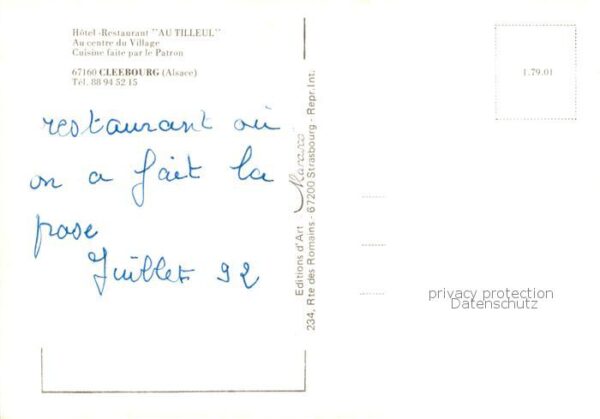 Hôtel-Restaurant "AU TILLEUL"
Au centre du Village
Cuisine faite par le Patron
67160 CLEEBOURG (Alsace)
Tél. 88 94 52 15
restaurant où
on a fait la
pose
Juillet 92
Editions d'Art
234, Rte des Romains - 67200 Strasbourg - Repr. Int.
1.79.01
privacy protection
Datenschutz